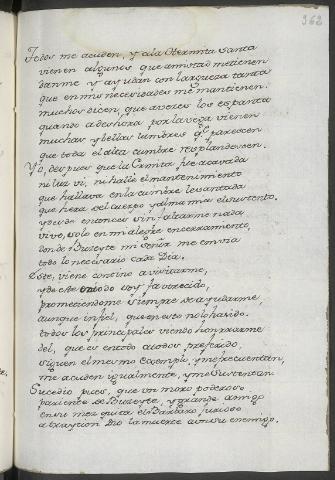 362
Todos me acuden, y a la Hermita santa
vienen algunos que amistad me tienen
danme y ayudan con largueza tanta
que en mis necesidades me mantienen:
muchos dicen, que a veces los espanta
quando a deshora por la vega vienen
muchas y bellas lumbres q.e parescen
que toda el alta cumbre resplandescen.
Yo, despues que la Ermita fue acavada
ni luz vi, ni hallè el mantenimiento
que hallava en la cumbre levantada
que hera del cuerpo y alma mia el sustento.
y desde entonces sin faltarme nada
vivo, solo en mi alegre encerramiento,
donde Buzeyte mi señor me embia
todo lo necesario cada Dia.
Este, viene contino a visitarme,
y de este modo soy favorecido,
prometiendome siempre de ayudarme,
aunque infiel, que en esto no lo ha sido.
todos los principales viendo honrrarme
del, que es en todo a todos preferido,
siguen el mesmo exemplo, y me frecuentan,
me acuden igualmente, y me sustentan.
Sucedio pues, que un moro poderoso
pariente de Buzeyte, y grande amigo
en su mezquita el Barbaro furioso
a traycion dio la muerte a un su enemigo.